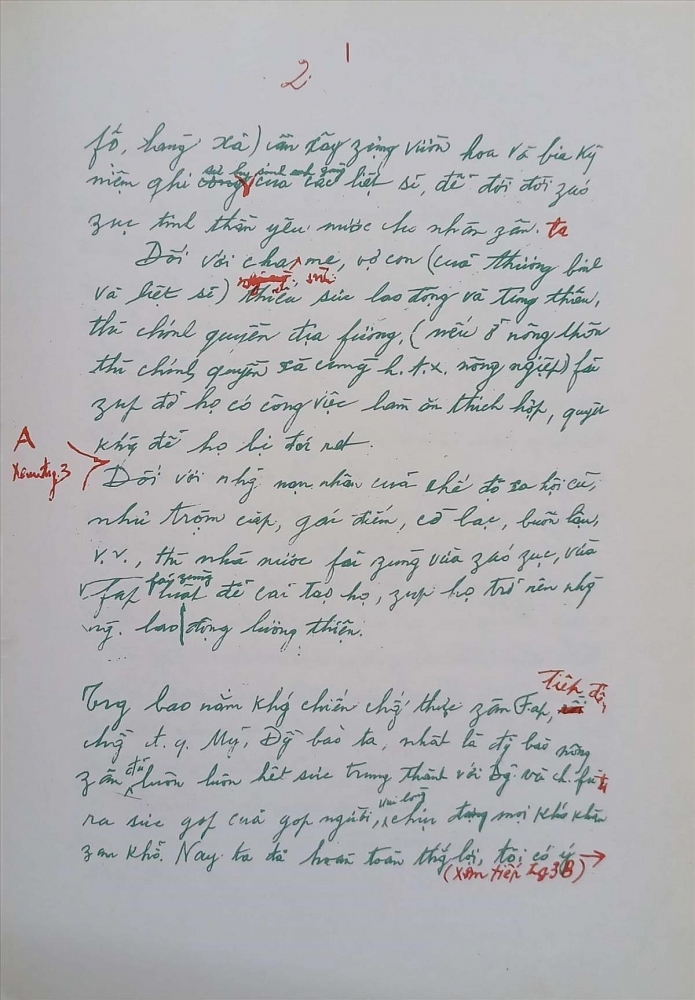 2
fố, hang xã) cần xây zựng vườn hoa và bia kỷ
niệm ghi sự hy sinh anh zũng của các liệt sĩ, để đời đời záo
zục tinh thần yêu nước cho nhân zân ta
Đối với cha, mẹ, vợ con (của thương binh
và liệt sĩ) thiếu sức lao động và túng thiếu,
thì chính quyền địa fương, (nếu ở nông thôn
thì chính quyền xã cùng h.t.x. nông ngiệp) fải
zúp đỡ họ có công việc làm ăn thích hợp, quyết
khg để họ bị đói rét.
A
Xem tg. 3
Đối với nhg nạn nhân của chế độ xa hội cũ,
như trộm cắp, gái điếm, cờ bạc, buôn lậu,
v.v., thì nhà nước fải zùng vừa záo zục, vừa
fải zùng
fap luật để cải tạo họ, zúp họ trở nên nhg
ng. lao động lương thiện.
Trg bao năm khg chiến chg thực zân Fap, tiếp đến
chg đ.q. Mỹ, Đg bào ta, nhất là đg bào nông
zân đã luôn luôn hết sức trung thành với Đg và ch. fủ ta
ra sức gop của gop người, vui lòng chịu đựng mọi kho khăn
zan khổ. Nay ta đã hoàn toàn thắg lợi, tôi có ý →
(Xem tiếp tg 3B)